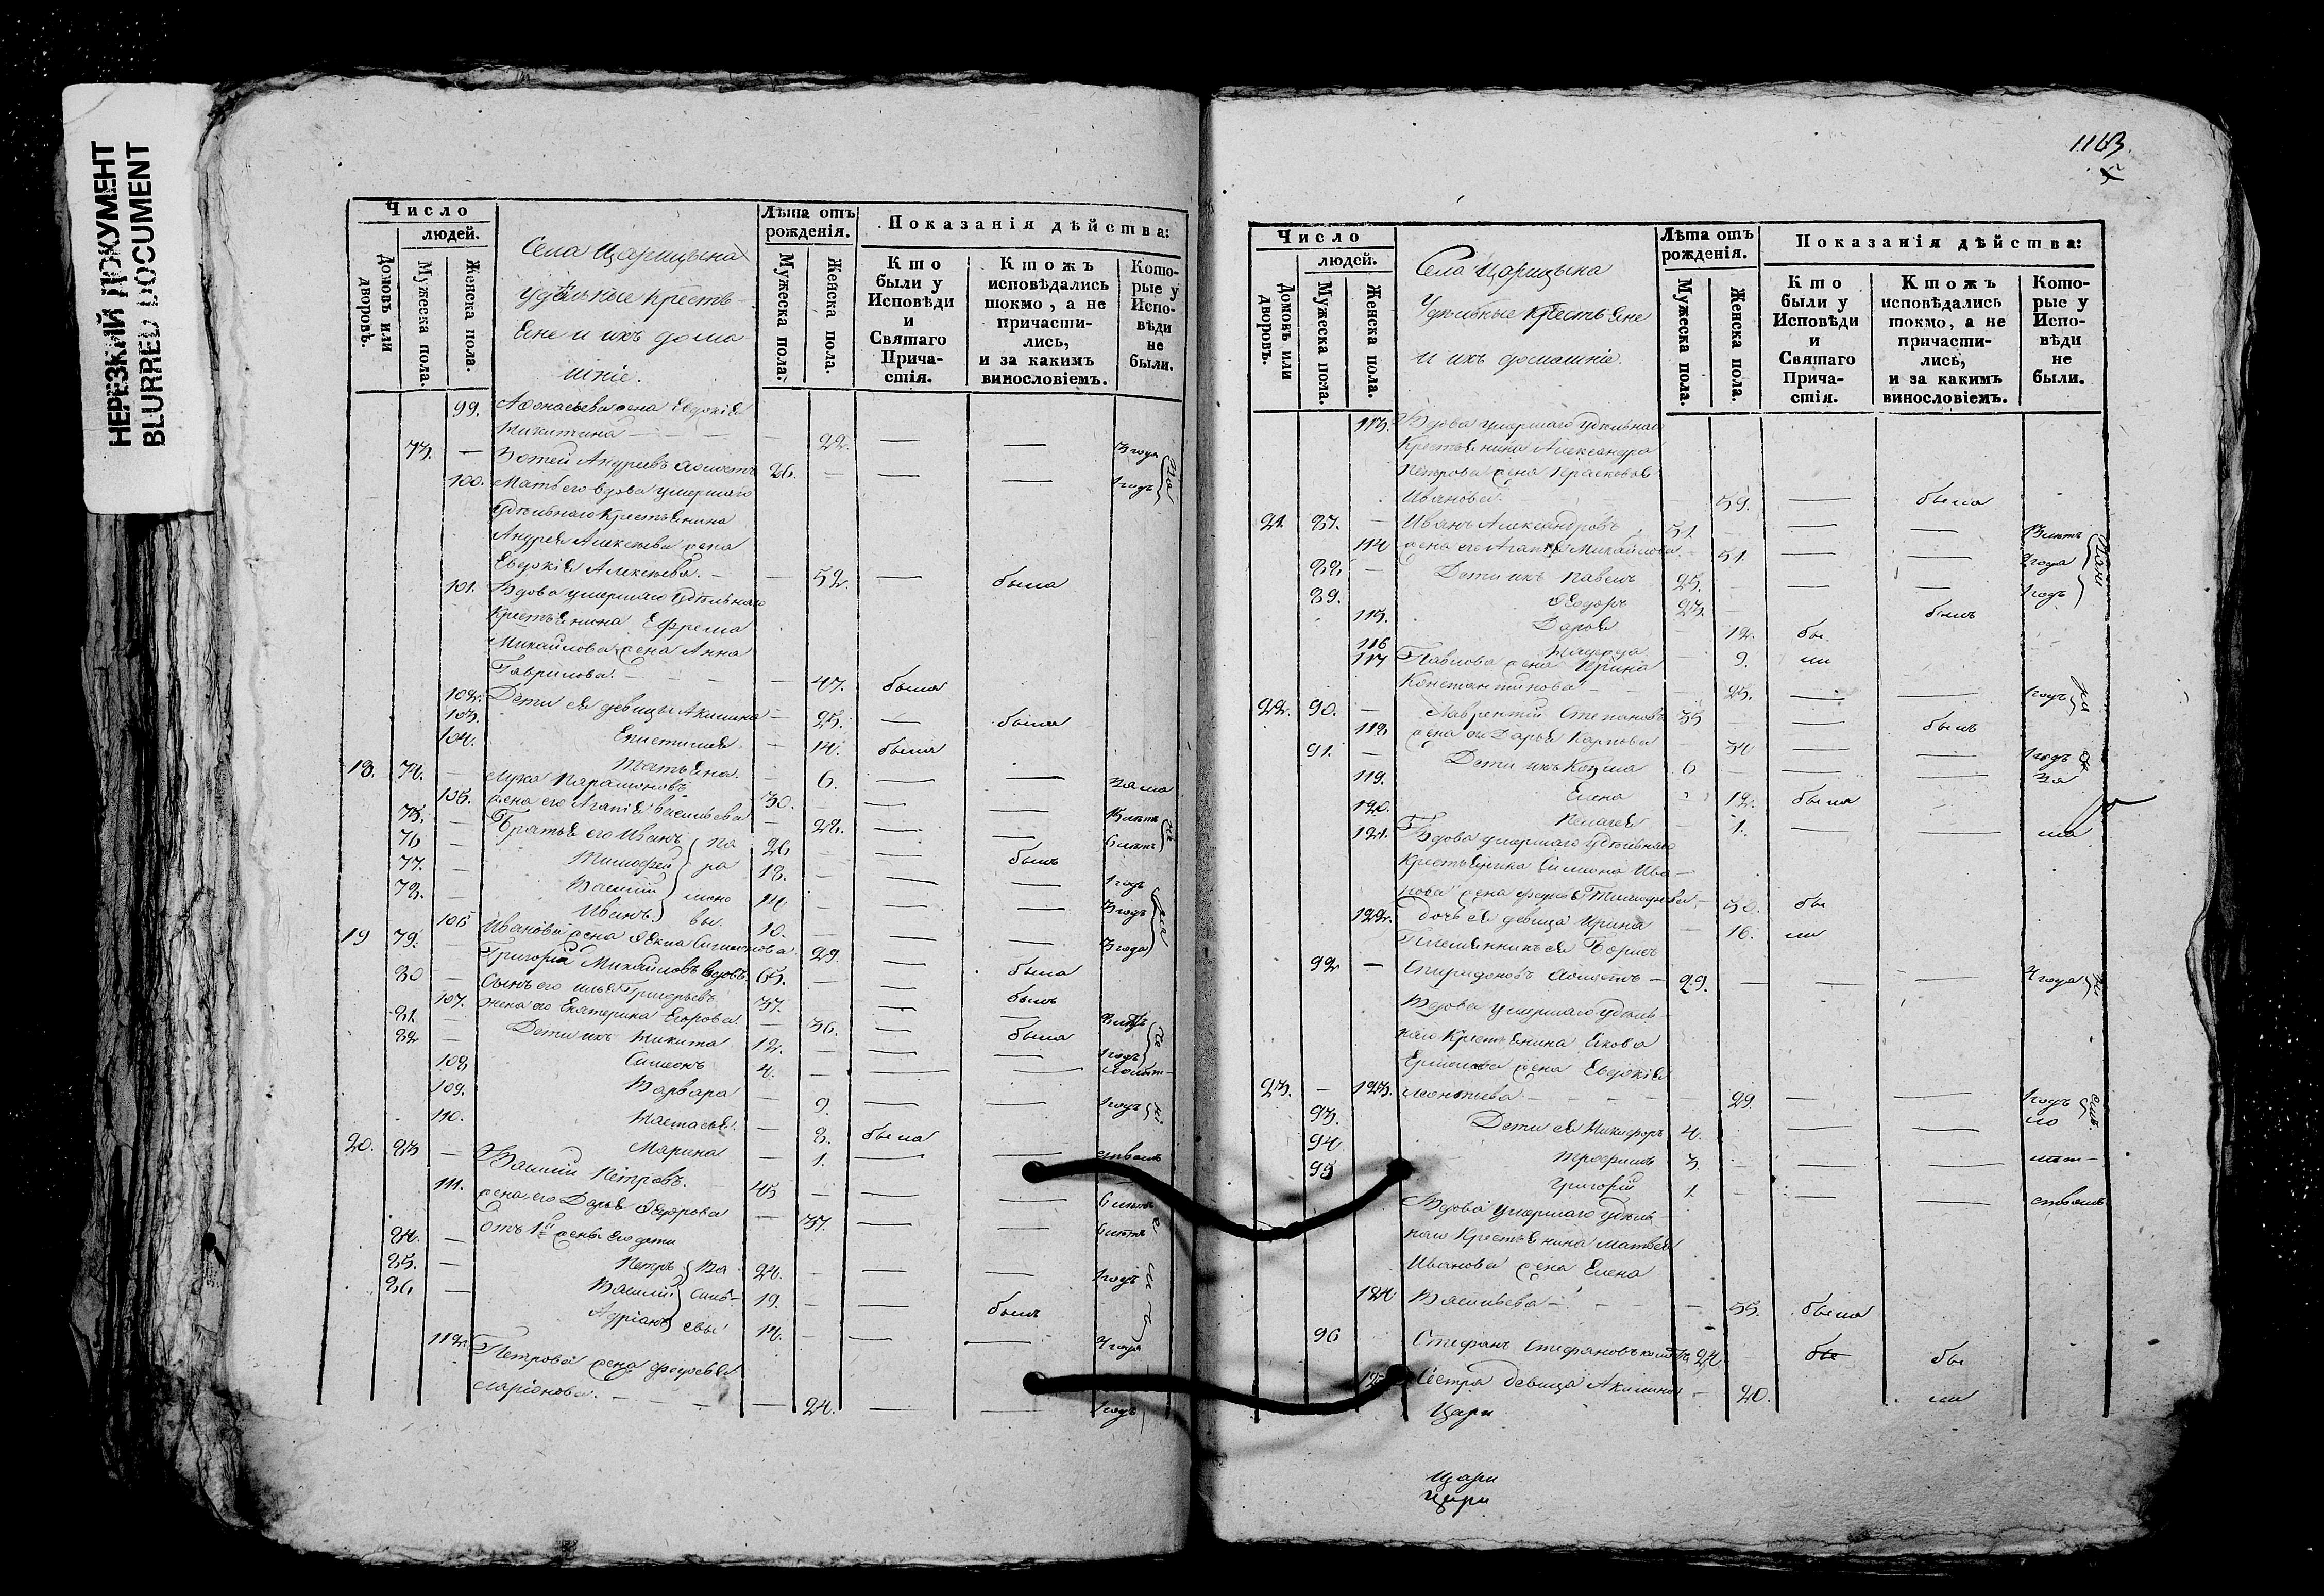 НЕРЕЗКИЙ ДОКУМЕНТ
BLURRED DOCUMENT
Число
людей.
Домовъ или дворовъ.
Мужеска пола.
Женска пола.
Села Царицына
удѣльные кресть-
яне и ихъ дома
шніе.
Лѣта отъ рожденія.
Мужеска пола.
Женска пола.
Показанія дѣйства:
Кто были у Исповѣди и Святаго Прича-стія.
Ктожъ исповѣдались токмо, а не причасти-лись, и за какимъ винословіемъ.
Кото-рые у Испо-вѣди не были.
99. Афонасьева жена Евдокія
Никитина 22.
73. Фотей Андреевъ 26. 3 года
100. Мать его вдова умершаго 1 годъ
удѣльнаго крестьянина
Андрея Алексѣева жена
Евдокія Алексѣева. 52. была
101. Вдова умершаго удѣльнаго
крестьянина Ефрема
Михайлова жена Анна
Гаврилова. 47. была
102. Дети ея девицы Акилина 25. была
103. Епистимия 14. была
104. Татьяна. 6. за ма
18. 74. Лука Парамоновъ 30.
105. жена его Агапія Васильева 28.
75. Братья его Иванъ 26
76. Тимофей 18. былъ
77. Василій 14 1 годъ
78. Иванъ 10.
106 Иванова жена Фекла 29. 3 года
19 79. Григорій Михайловъ вдовъ 65.
80 Сынъ его Илья Григорьевъ 37. былъ
107. жена его Екатерина Егорова. 36. была
81. Дети ихъ Никита 12.
82 Симеонъ 4.
108 Варвара 9. 1 годъ
109. Настасья. 8. была
110. Марина 1.
20. 83 Василій Петровъ. 45
111. жена его Дарья Федорова 37.
Отъ 1й жены его дети
84. Петръ 24.
85. Василій 19. 1 годъ
86 Адріанъ 14. былъ
112. Петрова жена Федосья
Ларіонова. 24. 1 годъ
1163.
Число
людей.
Домовъ или дворовъ.
Мужеска пола.
Женска пола.
Села Царицына
Удѣльные крестьяне
и ихъ домашніе.
Лѣта отъ рожденія.
Мужеска пола.
Женска пола.
Показанія дѣйства:
Кто были у Исповѣди и Святаго Прича-стія.
Ктожъ исповѣдались токмо, а не причасти-лись, и за какимъ винословіемъ.
Кото-рые у Испо-вѣди не были.
113. Вдова умершаго удѣльнаго
крестьянина Александра
Петрова жена Прасковья
Иванова. 59. была
21. 87. Иванъ Александровъ 51.
114 жена его Агапія Михайлова. 51. 2 года
88 Дети ихъ Павелъ 25. 1 годъ
89. Федоръ 23. былъ
115. Дарья 12. бы
116 9. ли
117 Павлова жена Ирина
Константинова 25. 1 годъ
22. 90. Лаврентій Степановъ 35 былъ
118 жена его Дарья Карпова 34 1 годъ
91. Дети ихъ Козма 6 за
119. Елена 12. была
120. Пелагея 1. ма
121. Вдова умершаго удѣльнаго
крестьянина Симиона Ива
нова жена Федосья Тимофѣева. 50. бы
122. Дочь ея девица Ирина 16. ли
Племянникъ ея Борисъ
92 Спиридоновъ 29. 4 года
Вдова умершаго удѣль
наго крестьянина Якова
Ермолова жена Евдокія
23. 123. Леонтьева 29. 1 годъ
93. Дети ея Никифоръ 4.
94 Трофимъ 3
95 Григорій 1.
Вдова умершаго удѣль
наго крестьянина Матвея
Иванова жена Елена
124 Васильева 55. была
96 Стефанъ Стефановъ 24 бы бы
Сестра девица Акилина 20. ли
Цари
Цари
Цари